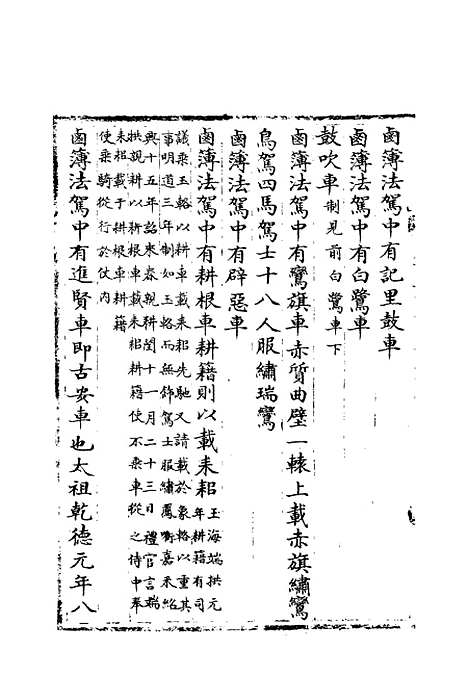 鹵簿法駕中有記里鼓車
鹵簿法駕中有白鷺車
鼓吹車制見前白鷺車下
鹵簿法駕中有鸞旗車赤質曲壁一轅上載赤旗繡鸞
鳥駕四馬駕士十八人服繡瑞鸞
鹵簿法駕中有辟惡車
鹵簿法駕中有耕根車耕籍則以載耒耜玉海端拱元年耕籍有司
議乘玉輅以耕車載耒耜先馳又請載於象輅以重其
事明道三年制如玉輅而無飾駕士服繡鳳銜嘉禾紹
興十五年詔來春親耕閏十一月二十三日禮官言端
拱親耕以耕根車載耒耜耕籍使不乘車從之侍中奉
耒耜載于耕根車耕籍
使乘騎從行於仗內
鹵簿法駕中有進賢車即古安車也太祖乾德元年八